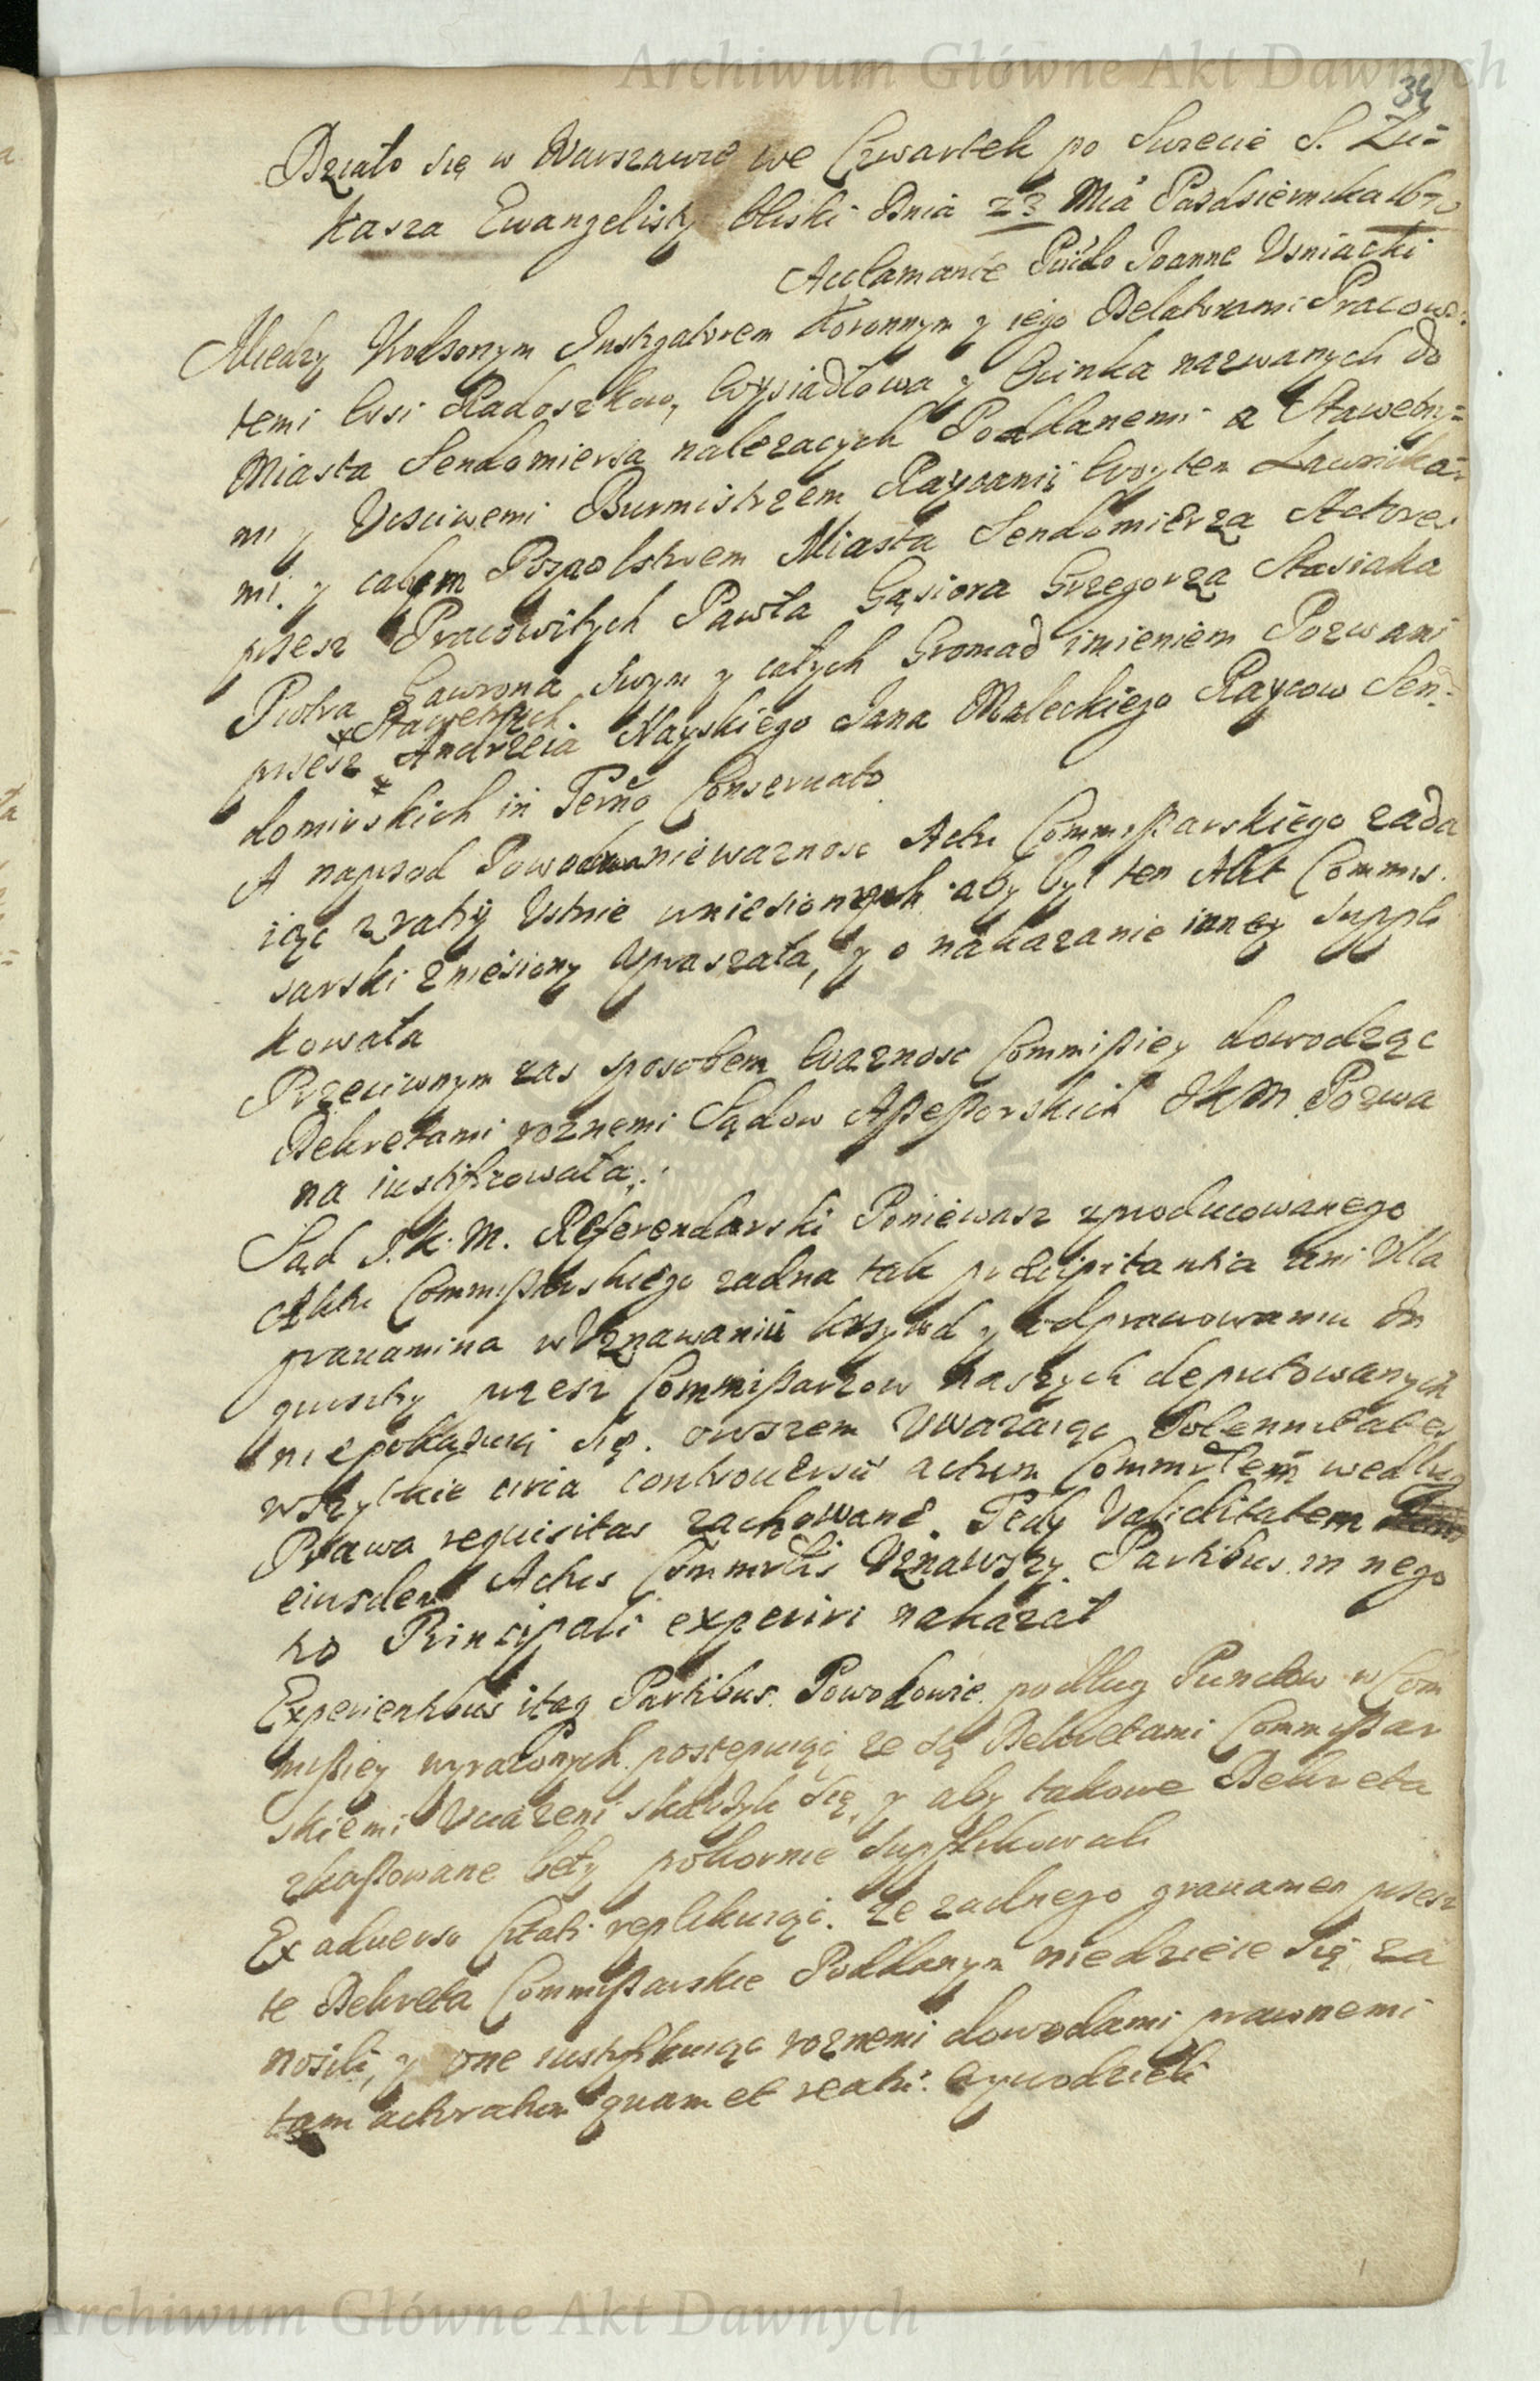 Archiwum Główne Akt Dawnych
34
Działo się w Warszawie we Czwartek po Swięcie S. Łu=
kasza Ewangelisty bliski dnia 23 Mca Pazdziernika 167
Acclamante Pvido Joanne Usniacki
Miedzy Urodzonym Instygatorem Koronnym y iego Delatorami Pracowi:
temi wsi Radoszkow, Wysiadłowa y Ocinka nazwanych do
Miasta Sendomierza nalezacych Poddanemi a Sławetny=
mi y Ucsciwemi Burmistrzem Raycami Woytem Ławnika=
mi y całym Pospolstwem Miasta Sendomierza Actores
przesz Pracowitych Pawła Gąsiora Grzegorza Stasiaka
Piotra Gawrona swym y całych Gromad imieniem Pozwani
Sławetnych
przesz Andrzeia Nayskiego Jana Maleckiego Raycow Sen=
domirskich in Termo Conseruato
A naprzod Powodowa niewaznosc Actu Commissarskiego zada
iąc z ratij Ustnie wniesionych aby był ten Akt Commis
sarski zniesiony Upraszała, y o nakazanie inney suppli
kowała
Przeciwnym zas sposobem wasnosc Commissiey dowodząc
Dekretami roznemi Sądow Assessorskich JKM Pozwa
na iustifikowała.
Sąd J.K.M. Referendarski Poniewasz z producowanego
Aktu Commissarskiego zadna tak precipitantia ani Ulla
grauamina w Uznawaniu krzywd y odprawowaniu In
quisity przesz Commissarzow naszych deputowanych
niepokazuią się. owszem Uwazaiąc Solennitates
wszytkie circa controuersū actum Commrlem według
Prawa requisitas zachowane. Tedy Validitatem
eiusdem Actus Commrlis Uznawszy. Partibus in nego
tio Principali experiri nakazał
Experientibus itaq Partibus. Powodowie. podług Punctow w Com
missiey wyrazonych. postępuiąc ze są Dekretami Commissar
skiemi Uciązeni skarzyli się, y aby takowe Dekreta
zkassowane były pokornie supplikowali
Ex aduerso Citati replikuiąc. ze zadnego grauamen przesz
te Dekreta Commissarskie Poddanym niedzieie się, za
nosili, y one iustyfikuiąc roznemi dowodami prawnemi
tam actoratum quam et reatū. wywodzieli
Archiwum Główne Akt Dawnych